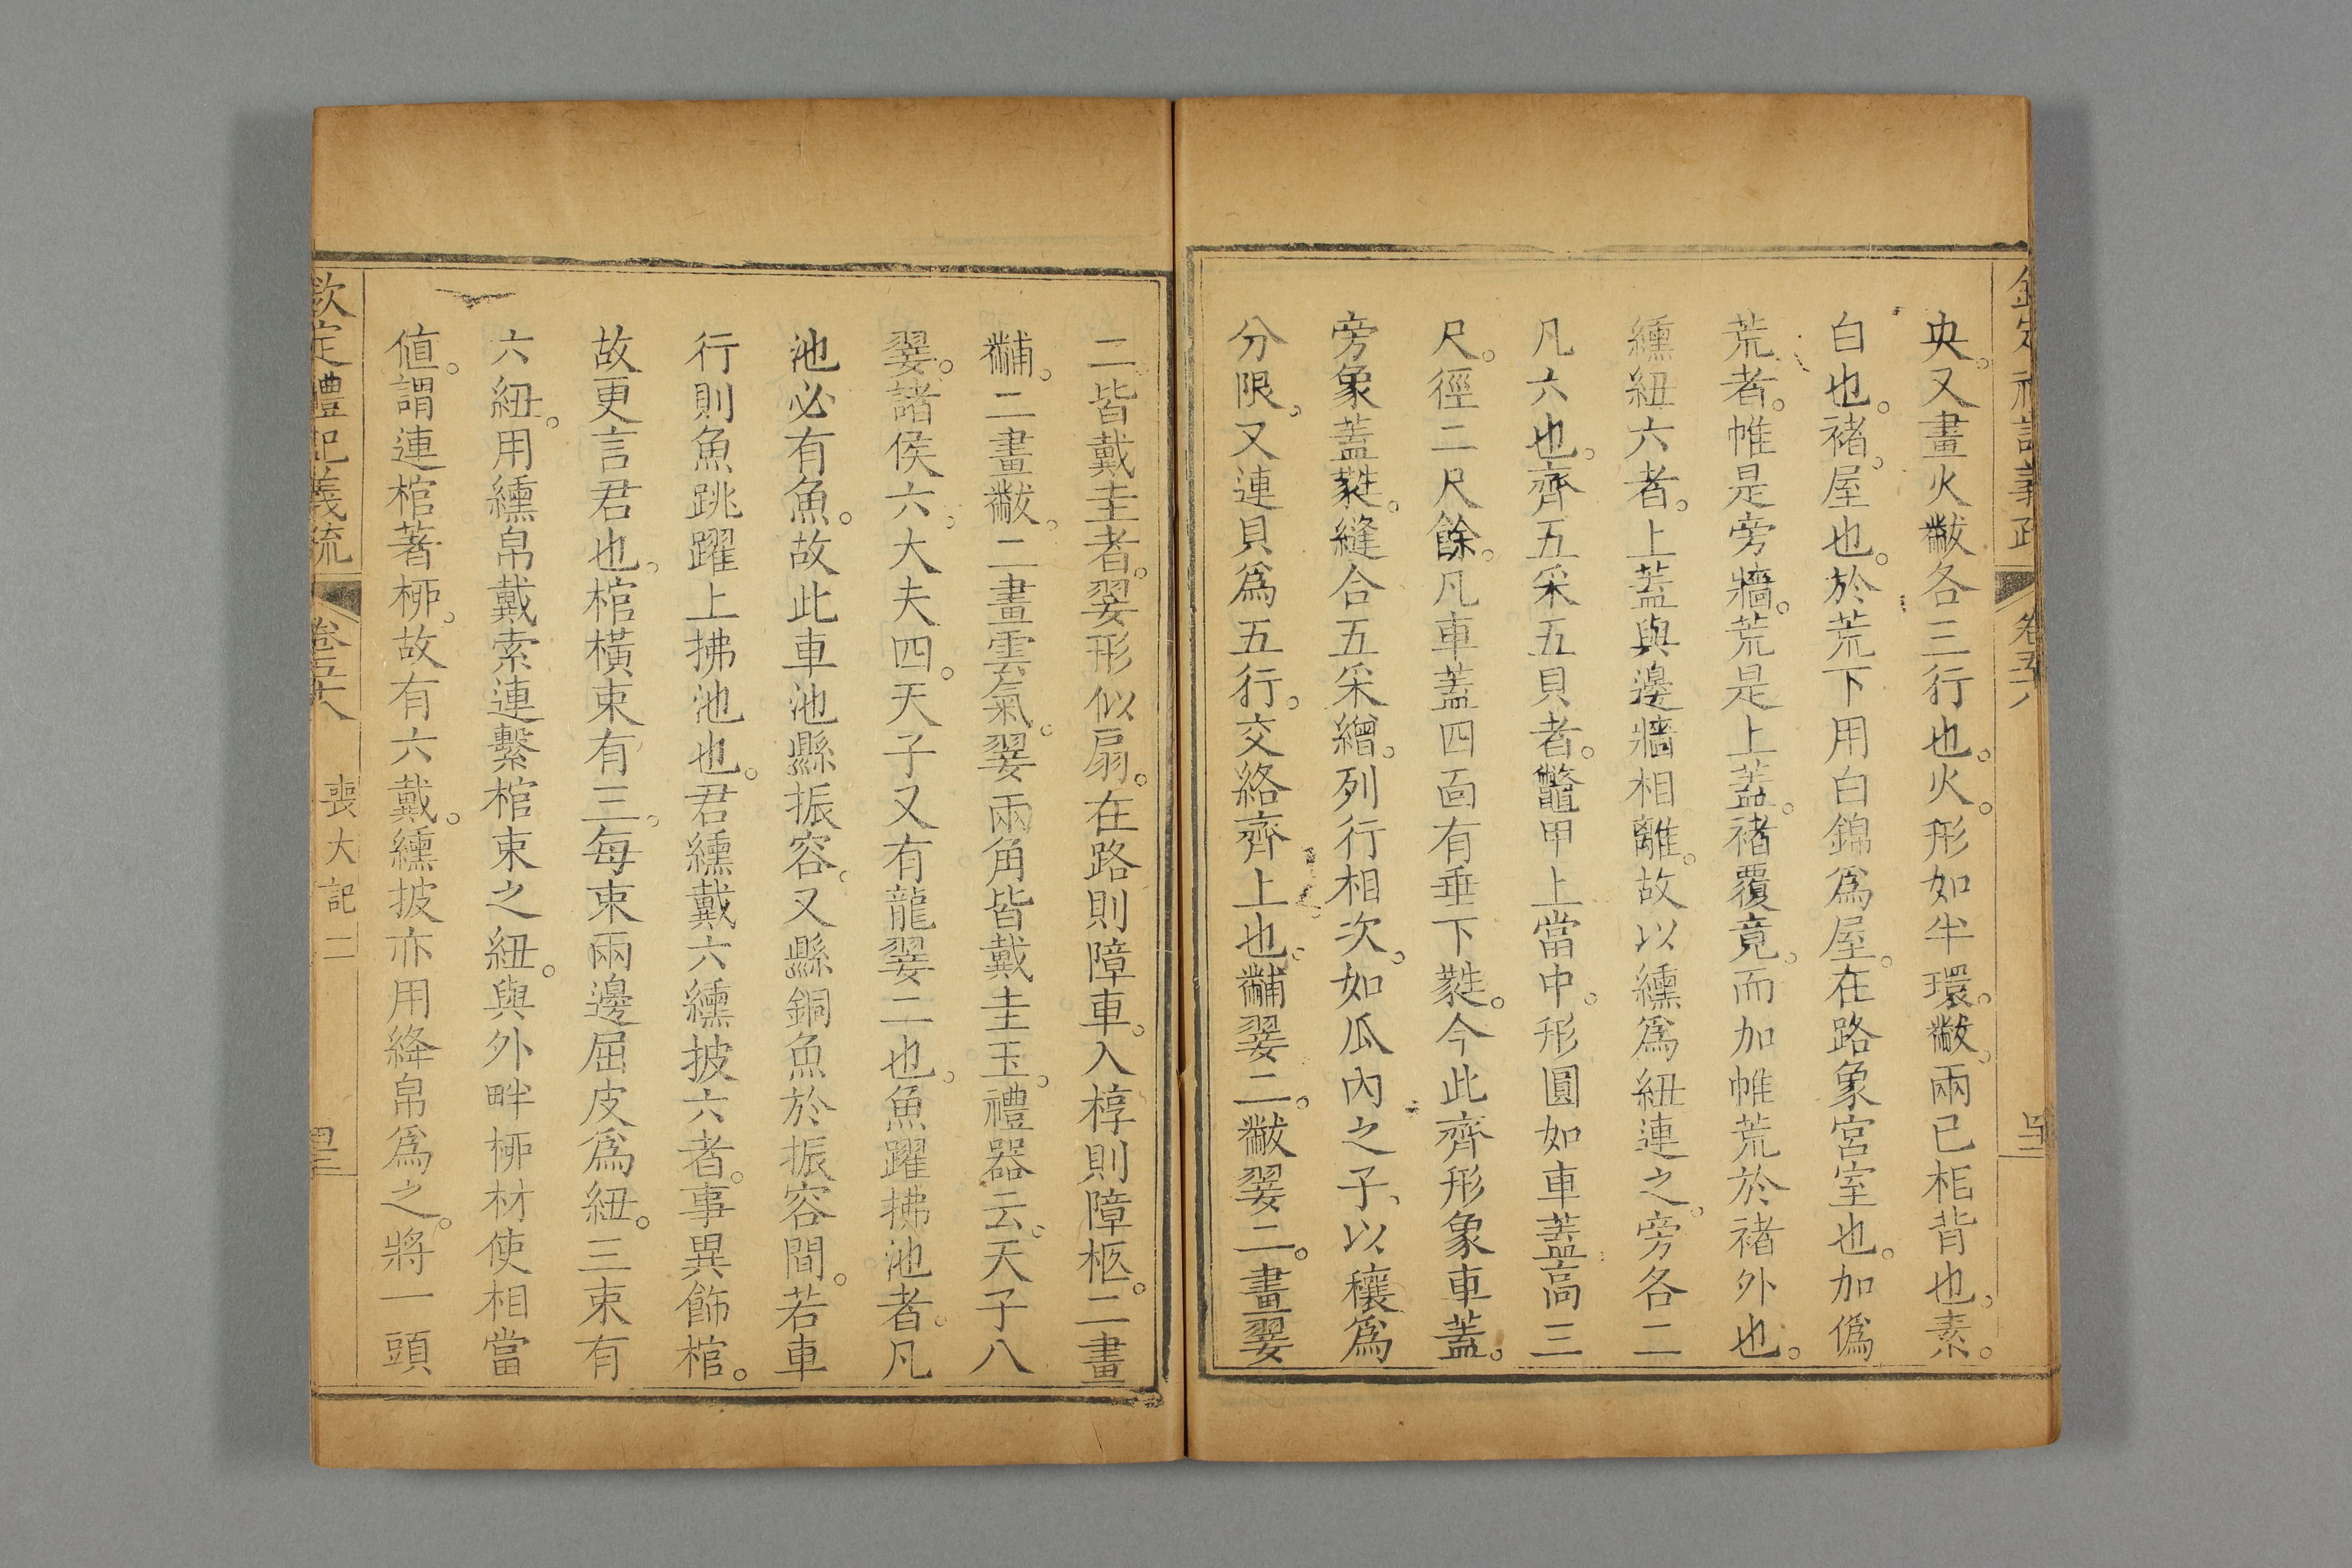 央。又畫火黻各三行也。火。形如半環。黻。兩已相背也。素。
白也。褚。屋也。於荒下用白錦爲屋。在路象宮室也。加僞
荒者。帷是旁牆。荒是上蓋。褚覆竟。而加帷荒於褚外也。
纁紐六者。上蓋與邊牆相離。故以纁爲紐連之。旁各二
凡六也。齊五采五貝者。鼈甲上當中。形圓如車蓋高三
尺。徑二尺餘。凡車蓋四面有垂下蕤。今此齊形象車蓋。
旁象蓋蕤。縫合五采繒。列行相次。如瓜內之子、以穰爲
分限。又連貝爲五行。交絡齊上也。黼翣二。黻翣二。畫翣
二皆戴圭者。翣形似扇。在路則障車。入椁則障柩。二畫
黼。二畫黻。二畫雲氣。翣兩角皆戴圭玉。禮器云。天子八
翣。諸侯六。大夫四。天子又有龍翣二也。魚躍拂池者。凡
池必有魚。故此車池縣振容。又縣銅魚於振容間。若車
行則魚跳躍上拂池也。君纁戴六纁披六者。事異飾棺。
故更言君也。棺橫束有三。每束兩邊屈皮爲紐。三束有
六紐。用纁帛戴索連繫棺束之紐。與外畔桺材使相當
値。謂連棺著桺。故有六戴。纁披亦用絳帛爲之。將一頭
欽定禮記義疏 卷五十八 喪大記二